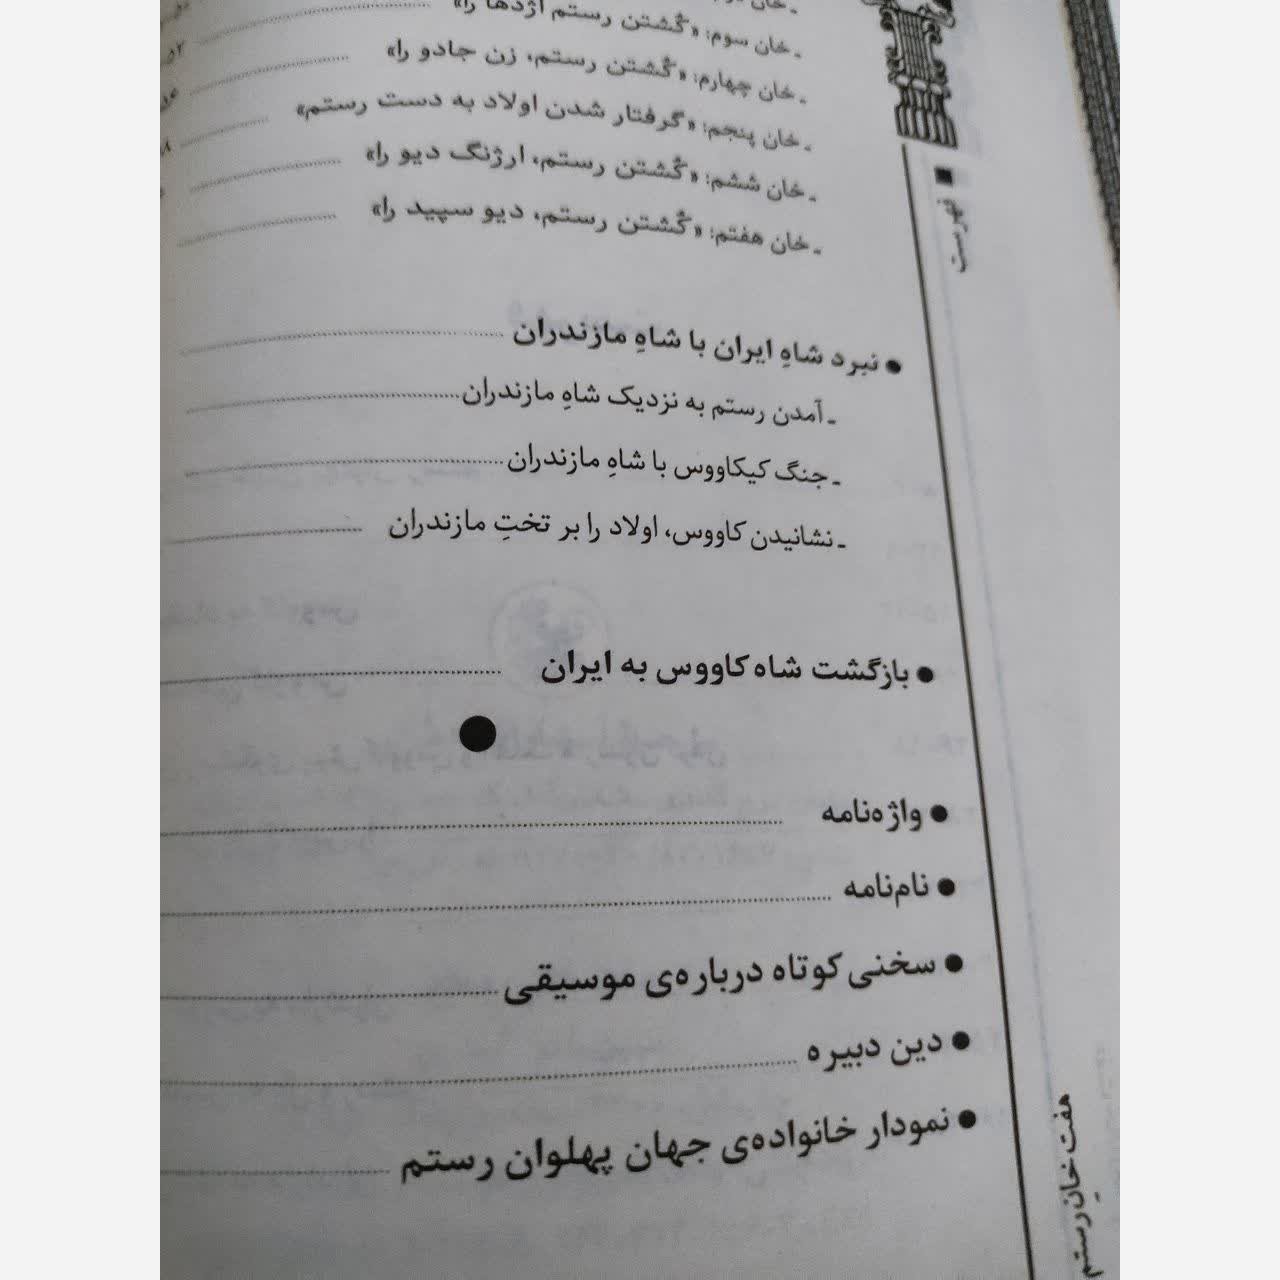 ـ خان سوم: «کُشتن رستم اژدها را»
ـ خان چهارم: «کُشتن رستم، زن جادو را»
ـ خان پنجم: «گرفتار شدن اولاد به دست رستم»
ـ خان ششم: «کُشتن رستم، ارژنگ دیو را»
ـ خان هفتم: «کُشتن رستم، دیو سپید را»
■ فهرست
● نبرد شاهِ ایران با شاهِ مازندران
ـ آمدن رستم به نزدیک شاهِ مازندران
ـ جنگ کیکاووس با شاهِ مازندران
ـ نشانیدن کاووس، اولاد را بر تختِ مازندران
● بازگشت شاه کاووس به ایران
● واژه‌نامه
● نام‌نامه
● سخنی کوتاه درباره‌ی موسیقی
● دین دبیره
● نمودار خانواده‌ی جهان پهلوان رستم
هفت خانِ رستم